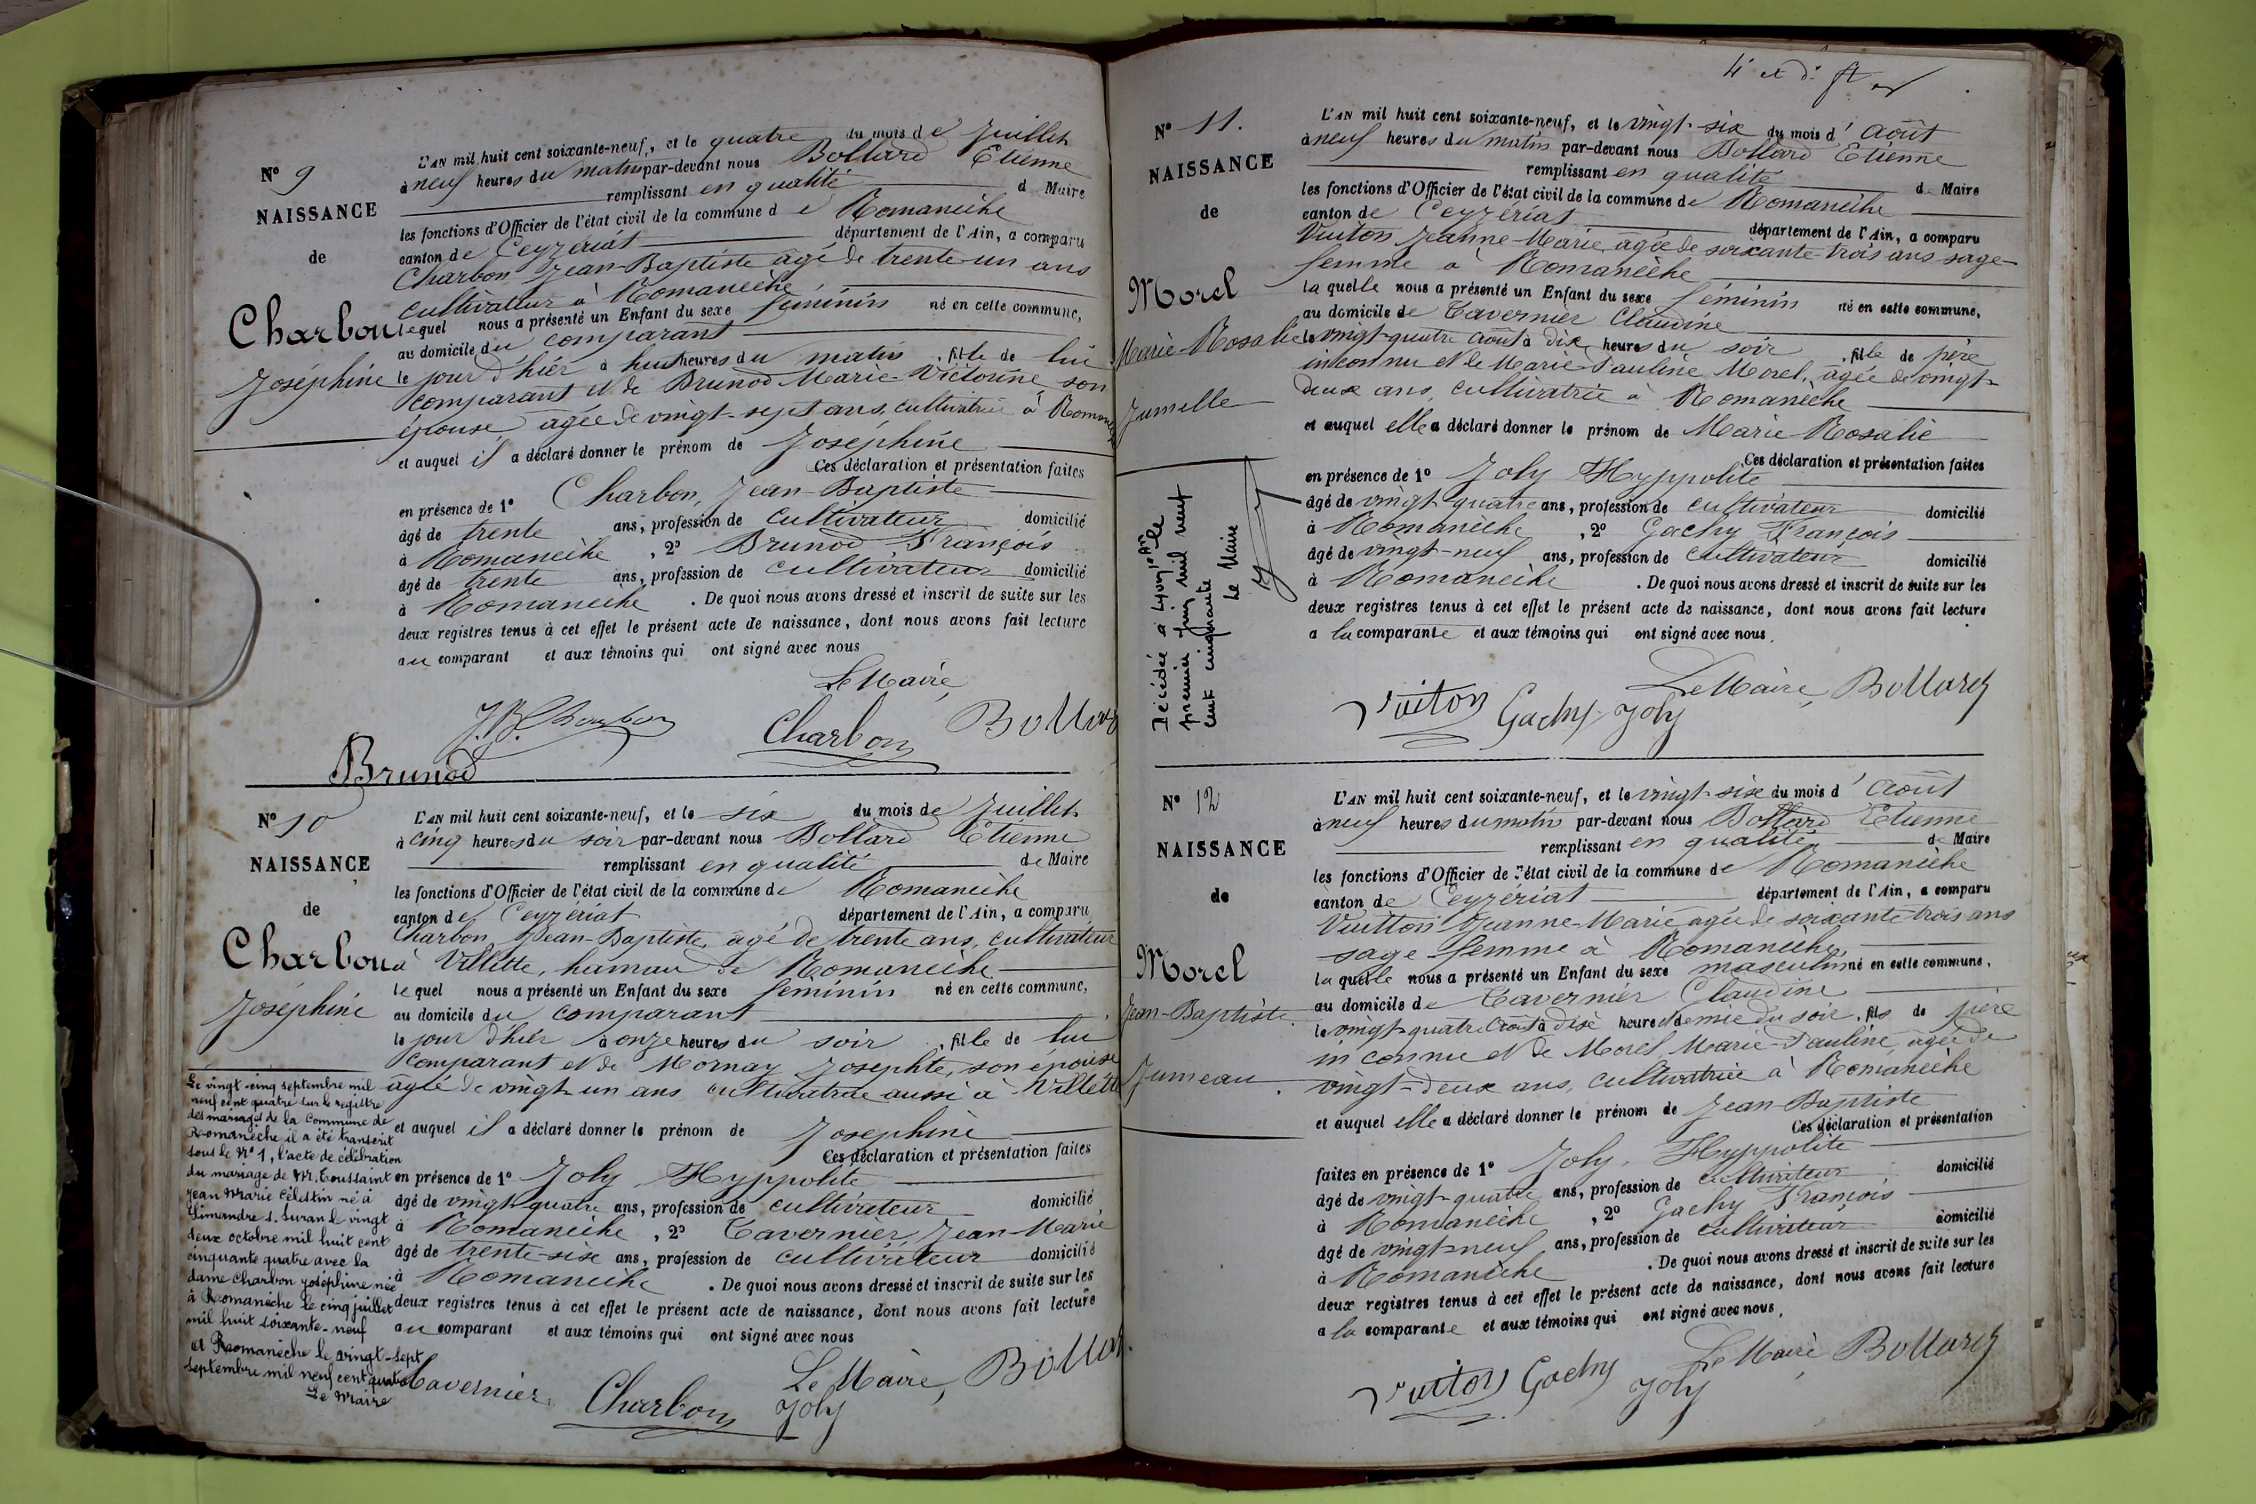 N° 9
NAISSANCE
de
Charbon
Joséphine
L'AN mil huit cent soixante-neuf, et le quatre du mois de Juillet
à neuf heures du matin par-devant nous Bollard Etienne
remplissant en qualité de Maire
les fonctions d'Officier de l'état civil de la commune de Romanèche
canton de Ceyzériat département de l'Ain, a comparu
Charbon Jean-Baptiste âgé de trente-un ans
cultivateur à Romanèche
lequel nous a présenté un Enfant du sexe féminin né en cette commune,
au domicile du comparant
le jour d'hier à huit heures du matin, fille de lui
comparant et de Brunod Marie-Victorine son
épouse âgée de vingt-sept ans, cultivatrice à Romanèche
et auquel il a déclaré donner le prénom de Joséphine
Ces déclaration et présentation faites
en présence de 1° Charbon, Jean-Baptiste
âgé de trente ans, profession de cultivateur domicilié
à Romanèche, 2° Brunod François
âgé de trente ans, profession de cultivateur domicilié
à Romanèche. De quoi nous avons dressé et inscrit de suite sur les
deux registres tenus à cet effet le présent acte de naissance, dont nous avons fait lecture
au comparant et aux témoins qui ont signé avec nous
Le Maire,
J. B. Charbon Charbon Bollard
Brunod
N° 10
NAISSANCE
de
Charbon
Joséphine
L'AN mil huit cent soixante-neuf, et le six du mois de Juillet
à cinq heures du soir par-devant nous Bollard Etienne
remplissant en qualité de Maire
les fonctions d'Officier de l'état civil de la commune de Romanèche
canton de Ceyzériat département de l'Ain, a comparu
Charbon, Jean-Baptiste, âgé de trente ans, cultivateur
à Villette, hameau de Romanèche
lequel nous a présenté un Enfant du sexe féminin né en cette commune,
au domicile du comparant
le jour d'hier à onze heures du soir, fille de lui
comparant et de Mornay Josephte, son épouse
âgée de vingt-un ans cultivatrice aussi à Villette
et auquel il a déclaré donner le prénom de Joséphine
Ces déclaration et présentation faites
en présence de 1° Joly Hyppolite
âgé de vingt-quatre ans, profession de cultivateur domicilié
à Romanèche, 2° Tavernier, Jean-Marie
âgé de trente-six ans, profession de cultivateur domicilié
à Romanèche. De quoi nous avons dressé et inscrit de suite sur les
deux registres tenus à cet effet le présent acte de naissance, dont nous avons fait lecture
au comparant et aux témoins qui ont signé avec nous
Le Maire, Bollard
Tavernier Charbon Joly
Le vingt-cinq septembre mil
neuf cent quatre sur le registre
des mariages de la Commune de
Romanèche il a été transcrit
sous le N° 1, l'acte de célébration
du mariage de Mr. Toussaint
Jean Marie Célestin né à
Simandre s. Suran le vingt
deux octobre mil huit cent
cinquante quatre avec la
dame Charbon Joséphine née
à Romanèche le cinq juillet
mil huit soixante-neuf
à Romanèche le vingt-sept
septembre mil neuf cent quatre
Le Maire
N° 11.
NAISSANCE
de
Morel
Marie-Rosalie
Jumelle
Décédée à Lyon, 1er Arr le
premier juin mil neuf
cent cinquante
Le Maire
L'AN mil huit cent soixante-neuf, et le vingt-six du mois d'Août
à neuf heures du matin par-devant nous Bollard Etienne
remplissant en qualité de Maire
les fonctions d'Officier de l'état civil de la commune de Romanèche
canton de Ceyzériat département de l'Ain, a comparu
Vuiton Jeanne-Marie, âgée de soixante-trois ans sage-
femme à Romanèche
laquelle nous a présenté un Enfant du sexe féminin né en cette commune,
au domicile de Tavernier Claudine
le vingt-quatre Août à dix heures du soir, fille de père
inconnu et de Marie-Pauline Morel, âgée de vingt-
deux ans, cultivatrice à Romanèche
et auquel elle a déclaré donner le prénom de Marie-Rosalie
Ces déclaration et présentation faites
en présence de 1° Joly Hyppolite
âgé de vingt-quatre ans, profession de cultivateur domicilié
à Romanèche, 2° Gachy François
âgé de vingt-neuf ans, profession de cultivateur domicilié
à Romanèche. De quoi nous avons dressé et inscrit de suite sur les
deux registres tenus à cet effet le présent acte de naissance, dont nous avons fait lecture
a la comparante et aux témoins qui ont signé avec nous.
Le Maire, Bollard
Vuiton Gachy Joly
N° 12
NAISSANCE
de
Morel
Jean-Baptiste
Jumeau
L'AN mil huit cent soixante-neuf, et le vingt-six du mois d'Août
à neuf heures du matin par-devant nous Bollard Etienne
remplissant en qualité de Maire
les fonctions d'Officier de l'état civil de la commune de Romanèche
canton de Ceyzériat département de l'Ain, a comparu
Vuitton Jeanne-Marie âgée de soixante trois ans
sage femme à Romanèche,
laquelle nous a présenté un Enfant du sexe masculin né en cette commune,
au domicile de Tavernier Claudine
le vingt-quatre Août à dix heures et demie du soir, fils de père
inconnu et de Morel Marie-Pauline, âgée de
vingt-deux ans, cultivatrice à Romanèche
et auquel elle a déclaré donner le prénom de Jean-Baptiste
Ces déclaration et présentation
faites en présence de 1° Joly, Hyppolite
âgé de vingt-quatre ans, profession de cultivateur domicilié
à Romanèche, 2° Gachy François
âgé de vingt-neuf ans, profession de cultivateur domicilié
à Romanèche. De quoi nous avons dressé et inscrit de suite sur les
deux registres tenus à cet effet le présent acte de naissance, dont nous avons fait lecture
a la comparante et aux témoins qui ont signé avec nous,
Le Maire, Bollard
Vuiton Gachy Joly